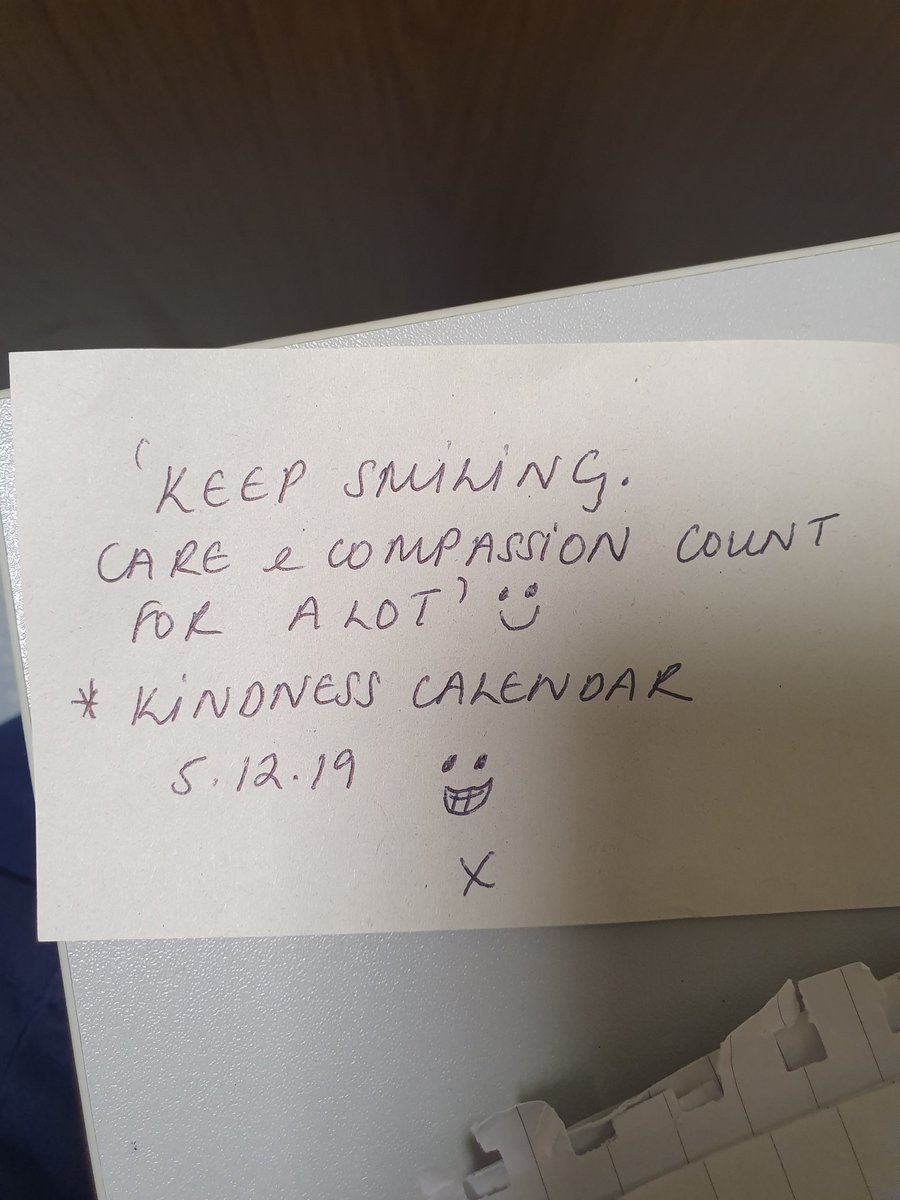 'KEEP SMILING.
CARE & COMPASSION COUNT
FOR ALOT' 
* KINDNESS CALENDAR
5.12.19
X